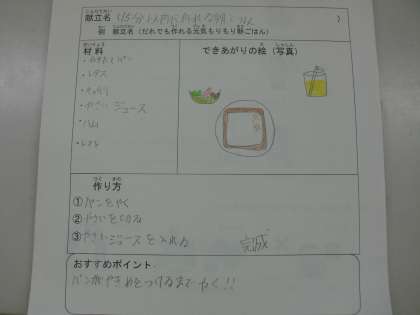 献立名 15分以内に作れる朝ごはん
例 献立名（だれでも作れる元気もりもり朝ごはん）
材料
できあがりの絵（写真）
・レタス
・きゅうり
・やさいジュース
・ハム
作り方
①パンをやく
②やさいを切る
③やさいジュースを入れる
完成
おすすめポイント
パンがやきめをつけるまでやく!!